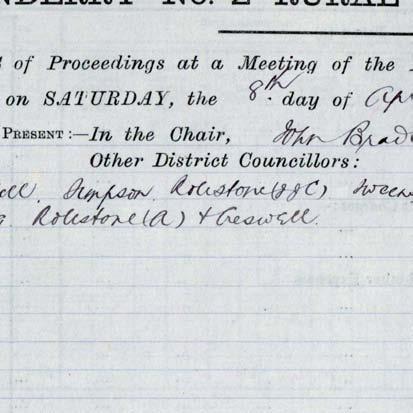 NDERRY NO. 2 RURAL
of Proceedings at a Meeting of the
on SATURDAY, the 8th day of Apr
PRESENT:—In the Chair, John Brad
Other District Councillors:
ell. Simpson. Rolestone (JJC) Sweeney
Rolestone (A) & Creswell.